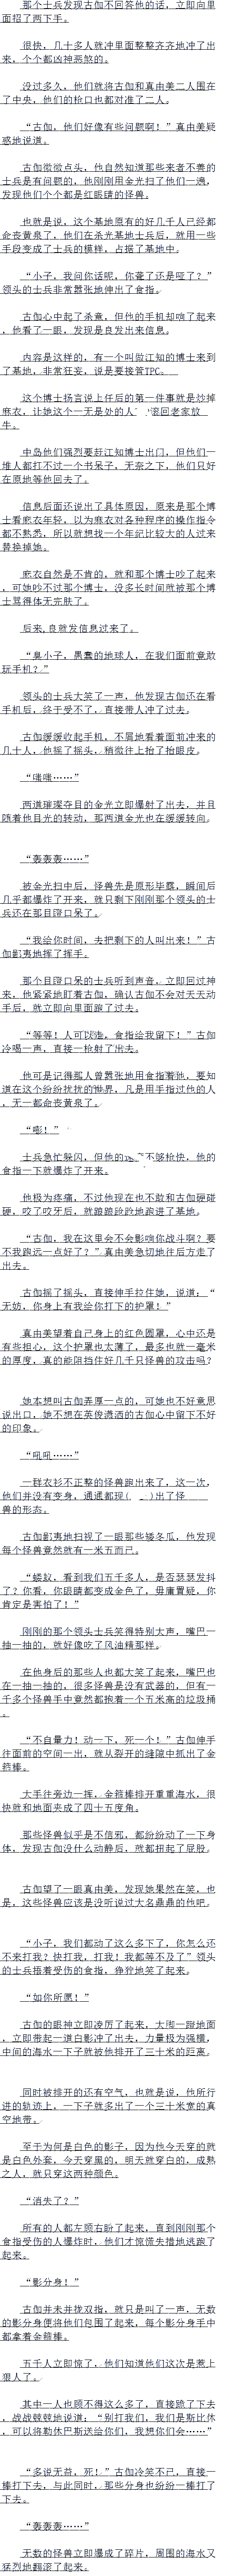 那个士兵发现古伽不回答他的话，立即向里
面招了两下手。
很快，几十多人就冲里面整整齐齐地冲了出
来，个个都凶神恶煞的。
没过多久，他们就将古伽和真由美二人围在
了中央，他们的枪口也都对准了二人。
“古伽，他们好像有些问题啊！”真由美疑
惑地说道。
古伽微微点头，他自然知道那些来者不善的
士兵是有问题的，他刚刚用金光扫了他们一遍，
发现他们个个都是红眼睛的怪兽。
也就是说，这个基地原有的好几千人已经都
命丧黄泉了，他们在杀光基地士兵后，就用一些
手段变成了士兵的模样，占据了基地中。
“小子，我问你话呢，你聋了还是哑了？”
领头的士兵非常嚣张地伸出了食指。
古伽心中起了杀意，但他的手机却响了起来
，他看了一眼，发现是良发出来信息。
内容是这样的，有一个叫故江知的博士来到
了基地，非常狂妄，说是要接管TPC。
这个博士扬言说上任后的第一件事就是炒掉
麻衣，让她这个一无是处的人 滚回老家放
牛。
中岛他们强烈要赶江知博士出门，但他们一
堆人都打不过一个书呆子，无奈之下，他们只好
在原地等他回去了。
信息后面还说出了具体原因，原来是那个博
士看麻衣年轻，以为麻衣对各种程序的操作指令
都不熟悉，所以就想找一个年纪比较大的人过来
替换掉她。
麻衣自然是不肯的，就和那个博士吵了起来
，可她吵不过那个博士，没多长时间就被那个博
士骂得体无完肤了。
后来，良就发信息过来了。
“臭小子，愚蠢的地球人，在我们面前竟敢
玩手机？”
领头的士兵大笑了一声，他发现古伽还在看
手机后，终于受不了，直接带人冲了过去。
古伽缓缓收起手机，不屑地看着面前冲来的
几十人，他摇了摇头，稍微往上抬了抬眼皮。
“嗤嗤……”
两道璀璨夺目的金光立即爆射了出去，并且
随着他目光的转动，那两道金光也在缓缓转向。
“轰轰轰……”
被金光扫中后，怪兽先是原形毕露，瞬间后
几乎都爆炸了开来，就只剩下刚刚那个领头的士
兵还在那目瞪口呆了。
“我给你时间，去把剩下的人叫出来！”古
伽鄙夷地挥了挥手。
那个目瞪口呆的士兵听到声音，立即回过神
来，他紧紧地盯着古伽，确认古伽不会对天天动
手后，就立即向里面跑了过去。
“等等！人可以走，食指给我留下！”古伽
冷喝一声，直接一枪射了出去。
他可是记得那人曾嚣张地用食指着他，要知
道在这个纷纷扰扰的世界，凡是用手指过他的人
，无一都命丧黄泉了。
“嘭！”
士兵急忙躲闪，但他的 不够枪快，他的
食指一下就爆炸了开来。
他极为疼痛，不过他现在也不敢和古伽硬碰
硬，咬了咬牙后，就踉踉跄跄地跑进了基地。
“古伽，我在这里会不会影响你战斗啊？要
不我跑远一点好了？”真由美急切地往后方走了
出去。
古伽摇了摇头，直接伸手拉住她，说道：“
无妨，你身上有我给你打下的护罩！”
真由美望着自己身上的红色圆罩，心中还是
有些担心，这个护罩也太薄了，最多也就一毫米
的厚度，真的能阻挡住好几千只怪兽的攻击吗？
她本想叫古伽弄厚一点的，可她也不好意思
说出口，她不想在英俊潇洒的古伽心中留下不好
的印象。
“吼吼……”
一群衣衫不正整的怪兽跑出来了，这一次，
他们并没有变身，通通都现( )出了怪
兽的形态。
古伽鄙夷地扫视了一眼那些矮冬瓜，他发现
每个怪兽竟然就有一米五而已。
“蝼蚁，看到我们五千多人，是否瑟瑟发抖
了？你看，你眼睛都变成金色了，毋庸置疑，你
肯定是害怕了！”
刚刚的那个领头士兵笑得特别大声，嘴巴一
抽一抽的，就好像吃了风油精那样。
在他身后的那些人也都大笑了起来，嘴巴也
在一抽一抽的，很多怪兽是没有武器的，但有一
千多个怪兽手中竟然都抱着一个五米高的垃圾桶
。
“不自量力！动一下，死一个！”古伽伸手
往面前的空间一出，就从裂开的缝隙中抓出了金
箍棒。
大手往旁边一挥，金箍棒排开重重海水，很
快就和地面夹成了四十五度角。
那些怪兽似乎是不信邪，都纷纷动了一下身
体，发现古伽没什么动静后，就都扭起了屁股。
古伽望了一眼真由美，发现她果然在笑，也
是，这些怪兽应该是没听说过大名鼎鼎的他吧。
“小子，我们都动了这么多下了，你怎么还
不来打我？快打我，打我！我都等不及了”领头
的士兵捂着受伤的食指，狰狞地笑了起来。
“如你所愿！”
古伽的眼神立即凌厉了起来，大脚一蹬地面
，立即带起一道白影冲了出去，力量极为强横，
中间的海水一下子就被他排开了三十米的距离。
同时被排开的还有空气，也就是说，他所行
进的轨迹上，一下子就多出了一个三十米宽的真
空地带。
至于为何是白色的影子，因为他今天穿的就
是白色外套，今天穿黑的，明天就穿白的，成熟
之人，就只穿这两种颜色。
“消失了？”
所有的人都左顾右盼了起来，直到刚刚那个
食指受伤的人爆炸时，他们才惊慌失措地逃跑了
起来。
“影分身！”
古伽并未并拢双指，就只是叫了一声，无数
的影分身便将他们包围了起来，每个影分身手中
都拿着金箍棒。
五千人立即惊了，他们知道他们这次是惹上
狠人了。
其中一人也顾不得这么多了，直接跪了下去
，战战兢兢地说道：“别打我们，我们是斯比休
，可以将勒休巴斯送给你们，我想你们会……”
“多说无益，死！”古伽冷笑不已，直接一
棒打下去，与此同时，那些分身也纷纷一棒打了
下去。
“轰轰轰……”
无数的怪兽立即爆成了碎片，周围的海水又
猛烈地翻滚了起来。